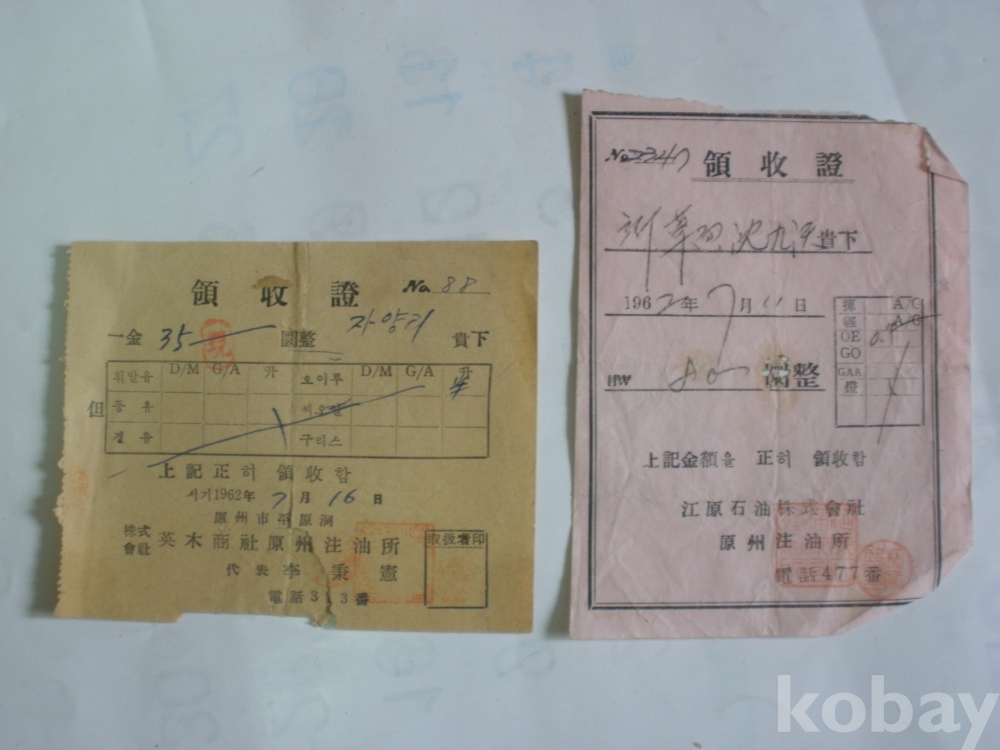 領收證 No 88
一金 35 圜整 자양리 貴下
D/M G/A 升 D/M G/A 升
휘발유 오이루
但 등유
경유 구리스
上記正히 領收함
서기1962年 7月 16日
原州市平原洞
株式會社 英木商社原州注油所
代表李秉憲
電話313番
取扱者印
No 2347 領收證
貴下
1962年 7月 11日
圜整
揮 A/C
輕 A/C
OE
GO
GAA
燈
上記金額을 正히 領收함
江原石油株式會社
原州注油所
電話477番
kobay